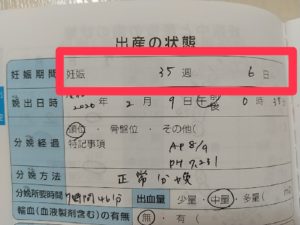 出産の状態
妊娠期間 妊娠 35 週 6 日
娩出日時 2020年 2月 9日 午前後 0時3
分娩経過 頭位・骨盤位・その他(
特記事項 AP 8/9
pH 7.231
分娩方法 正常分娩
分娩所要時間 7時間46分 出血量 少量・中量・多量(
輸血(血液製剤含む)の有無 無・有(